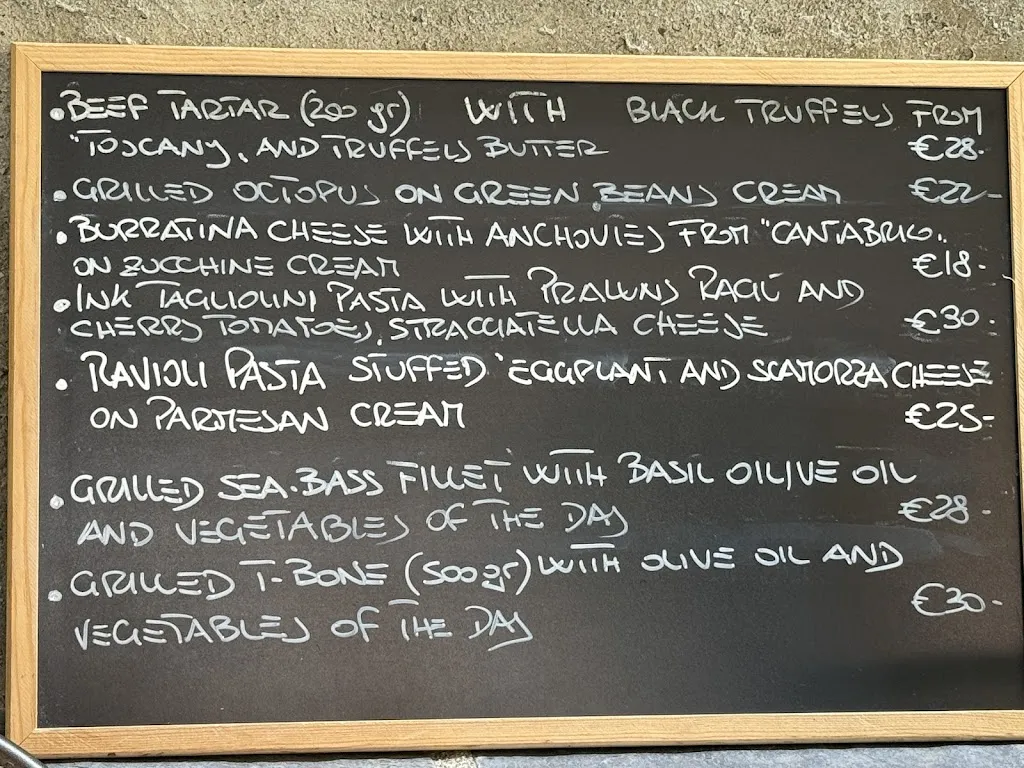 • BEEF TARTAR (200 gr) WITH BLACK TRUFFELS FROM
"TOSCANY, AND TRUFFELS BUTTER €28-
• GRILLED OCTOPUS ON GREEN BEANS CREAM €22-
• BURRATINA CHEESE WITH ANCHOVIES FROM "CANTABRIC"
ON ZUCCHINE CREAM €18-
• INK TAGLIOLINI PASTA WITH PRAWNS RAGÚ AND
CHERRY TOMATOES, STRACCIATELLA CHEESE €30-
• RAVIOLI PASTA STUFFED EGGPLANT AND SCAMORZA CHEESE
ON PARMESAN CREAM €25-
• GRILLED SEA-BASS FILLET WITH BASIL OILIVE OIL
AND VEGETABLES OF THE DAY €28-
• GRILLED T-BONE (500 gr) WITH OLIVE OIL AND
VEGETABLES OF THE DAY €30-